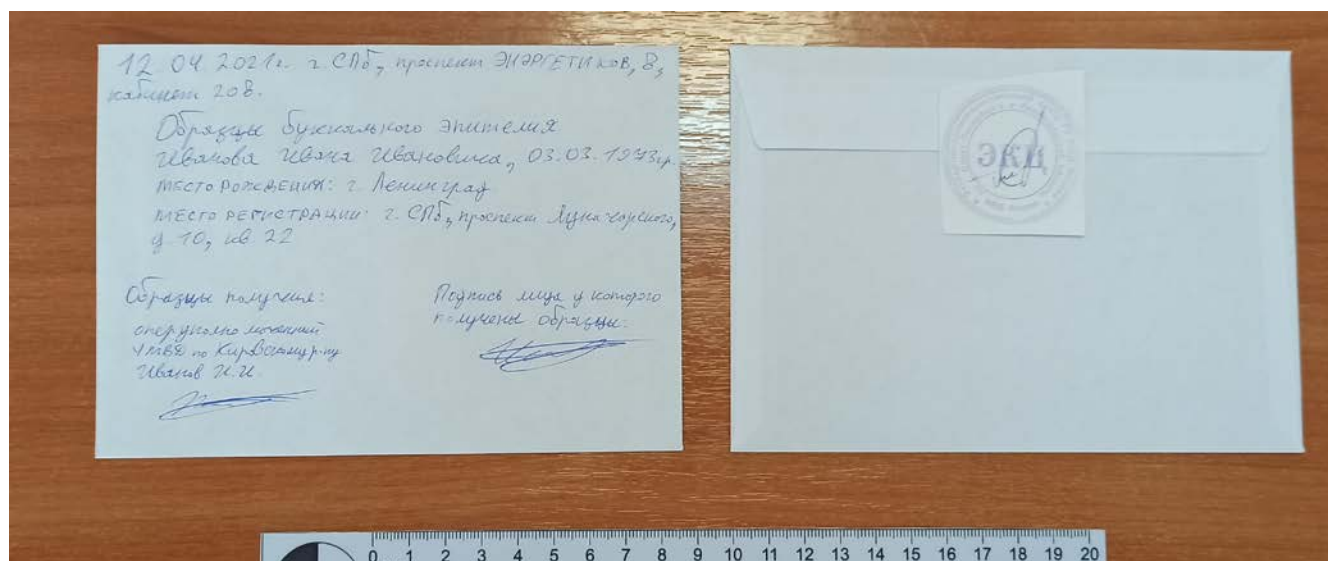 12.04.2021г. г. СПб, проспект ЭНЭРГЕТИКОВ, 8,
кабинет 208.
Образцы буккального эпителия
Иванова Ивана Ивановича, 03.03.1973гр.
МЕСТО РОЖДЕНИЯ: г. Ленинград
МЕСТО РЕГИСТРАЦИИ: г. СПб, проспект Луначарского,
д. 10, кв. 22
Образцы получил:
оперуполномоченный
УМВД по Кировскому р-ну
Иванов И.И.
Подпись лица у которого
получены образцы:
ЭКЦ
0 1 2 3 4 5 6 7 8 9 10 11 12 13 14 15 16 17 18 19 20